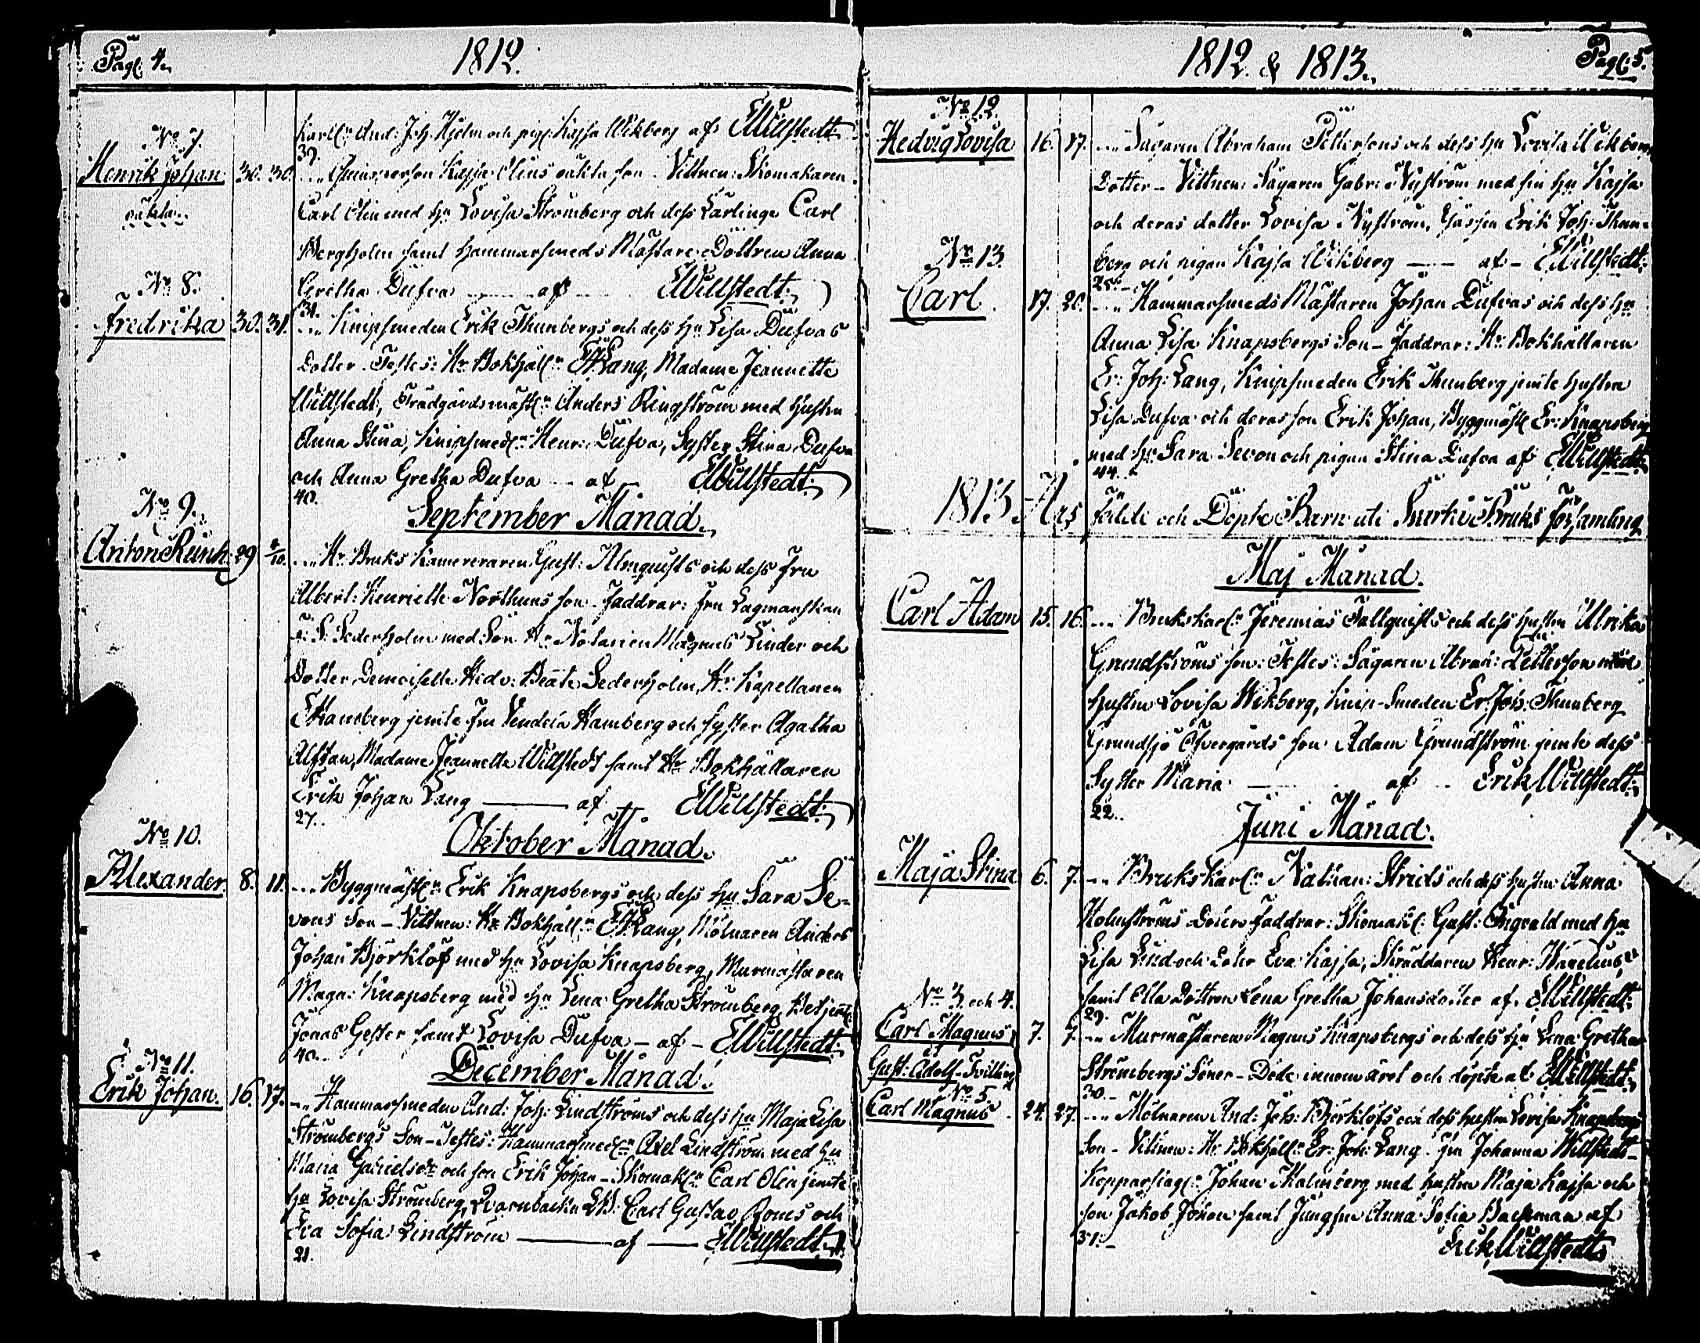 Pag: 4.
1812.
Karlen And: Joh: Hjelm och pig: Kajsa Wikberg af EWillstedt
No 7.
Henrik Johan
oäkta
30. 30.
39.
Qvinspersen Kajsa Olins oäkta son. Vittnen: Skomakaren
Carl Olin med Hu Lovisa Stromberg och dess Lärlinge Carl
Bergholm samt Hammarsmeds Mästare Döttren Anna
Gretha Dufva af EWillstedt
No 8.
Fredrika
30. 31.
31.
Knipsmeden Erik Thunbergs och dess Hu Lisa Dufvas
Dotter. Testes: Hr Bokhåll: EJLang, Madame Jeannette
Willstedt, Trädgårdsmäst: Anders Ringström med Hustru
Anna Stina, Knipsmed: Henr: Dufva, Syster Stina Dufva
och Anna Gretha Dufva af EWillstedt
40.
September Månad.
No 9.
Anton Reinh:
29 2/10.
Hr Bruks Kamereraren Gust: Almquists och dess Fru
Albert: Henriette Northuns son. Faddrar: Fru Lagmanskan
Sederholm med Son Hr Notarien Magnus Linder och
Dotter Demoiselle Hedv: Beata Sederholm, Hr Kapellanen
Hamberg jemte Fru Vendela Hamberg och Syster Agatha
Alftan, Madame Jeannette Willstedt samt Hr Bokhållaren
Erik Johan Lang af EWillstedt
27.
Oktober Månad.
No 10.
Alexander
8. 11.
Byggmäst: Erik Knapsbergs och dess Hu Sara Se-
vons Son – Vittnen: Hr Bokhåll: EJLang, Mölnaren Anders
Johan Björklöf med Hu Lovisa Knapsberg, Murmästaren
Magn: Knapsberg med Hu Lena Gretha Stromberg, Betjent:
Jonas Gester samt Lovisa Dufva – af – EWillstedt
40.
December Månad.
No 11.
Erik Johan
16. 17.
Hammarsmeden And: Joh: Lindströms och dess Hu Maja Lisa
Strombergs Son – Testes: Hammarsmed: Axel Lindström med Hu
Maria Gabrielsdr och son Erik Johan – Skomak: Carl Olin jemte
Hu Lovisa Stromberg, Carl Gustav Roms och
Eva Sofia Lindström af EWillstedt
21.
1812. & 1813.
Pag: 5.
No 12.
Hedvig Lovisa
16. 17.
Sågaren Abraham Pettersons och dess Hu Lovisa Wikbergs
Dotter – Vittnen: Sågaren Gabr: Nyström med sin Hu Kajsa
och deras dotter Lovisa Nyström, Erik Joh: Thun-
berg och pigan Kajsa Wikberg af EWillstedt
No 13.
Carl
17. 20.
Hammarsmeds Mästaren Johan Dufvas och dess Hu
Anna Lisa Knapsbergs Son – Faddrar: Hr Bokhållaren
Er: Joh: Lang, Knipsmeden Erik Thunberg jemte Hustru
Lisa Dufva och deras son Erik Johan, Byggmäst: Er: Knapsberg
med Hu Sara Sevon och pigan Stina Dufva af EWillstedt
44.
1813 Års Födde och Döpte Barn uti Bruks Församling
Maj Månad.
Carl Adam
15. 16.
Brukskarl: Jeremias Tallqvists och dess Hustru Ulrika
Grundströms son: Testes: Sågaren Abrah: Petterson med
Hustru Lovisa Wikberg, Knip-Smeden Er: Joh: Thunberg
Grundsjö son Adam Grundström jemte dess
Syster Maria af Erik Willstedt
22.
Juni Månad.
Maja Stina
6. 7.
Brukskarl: Nathan: Strids och dess Hustru Anna
Holmströms Dotter Faddrar: Skomak: Gust: Engvald med Hu
Lisa Lind och Doter Eva Kajsa, Skräddaren Henr:
samt Olla Dottren Lena Gretha Johansdotter af EWillstedt
29.
No 3 och 4.
Carl Magnus
Gust: Adolf. Tvilling
7. 7.
Murmästaren Magnus Knapsbergs och dess Hu Lena Gretha
Strombergs Söner – Döde innom året och döpte af EWillstedt
30.
No 5.
Carl Magnus
24. 27.
Mölnaren And: Joh: Björklöfs och dess Hustru Lovisa Knapsbergs
Son – Vittnen: Hr Bokhåll: Er: Joh: Lang. Fru Johanna Willstedt
Kopparslag: Johan Malmberg med Hustru Maja Kajsa och
son Jakob Johan samt Jungfru Anna Sofia Backman af
31.
Erik Willstedt